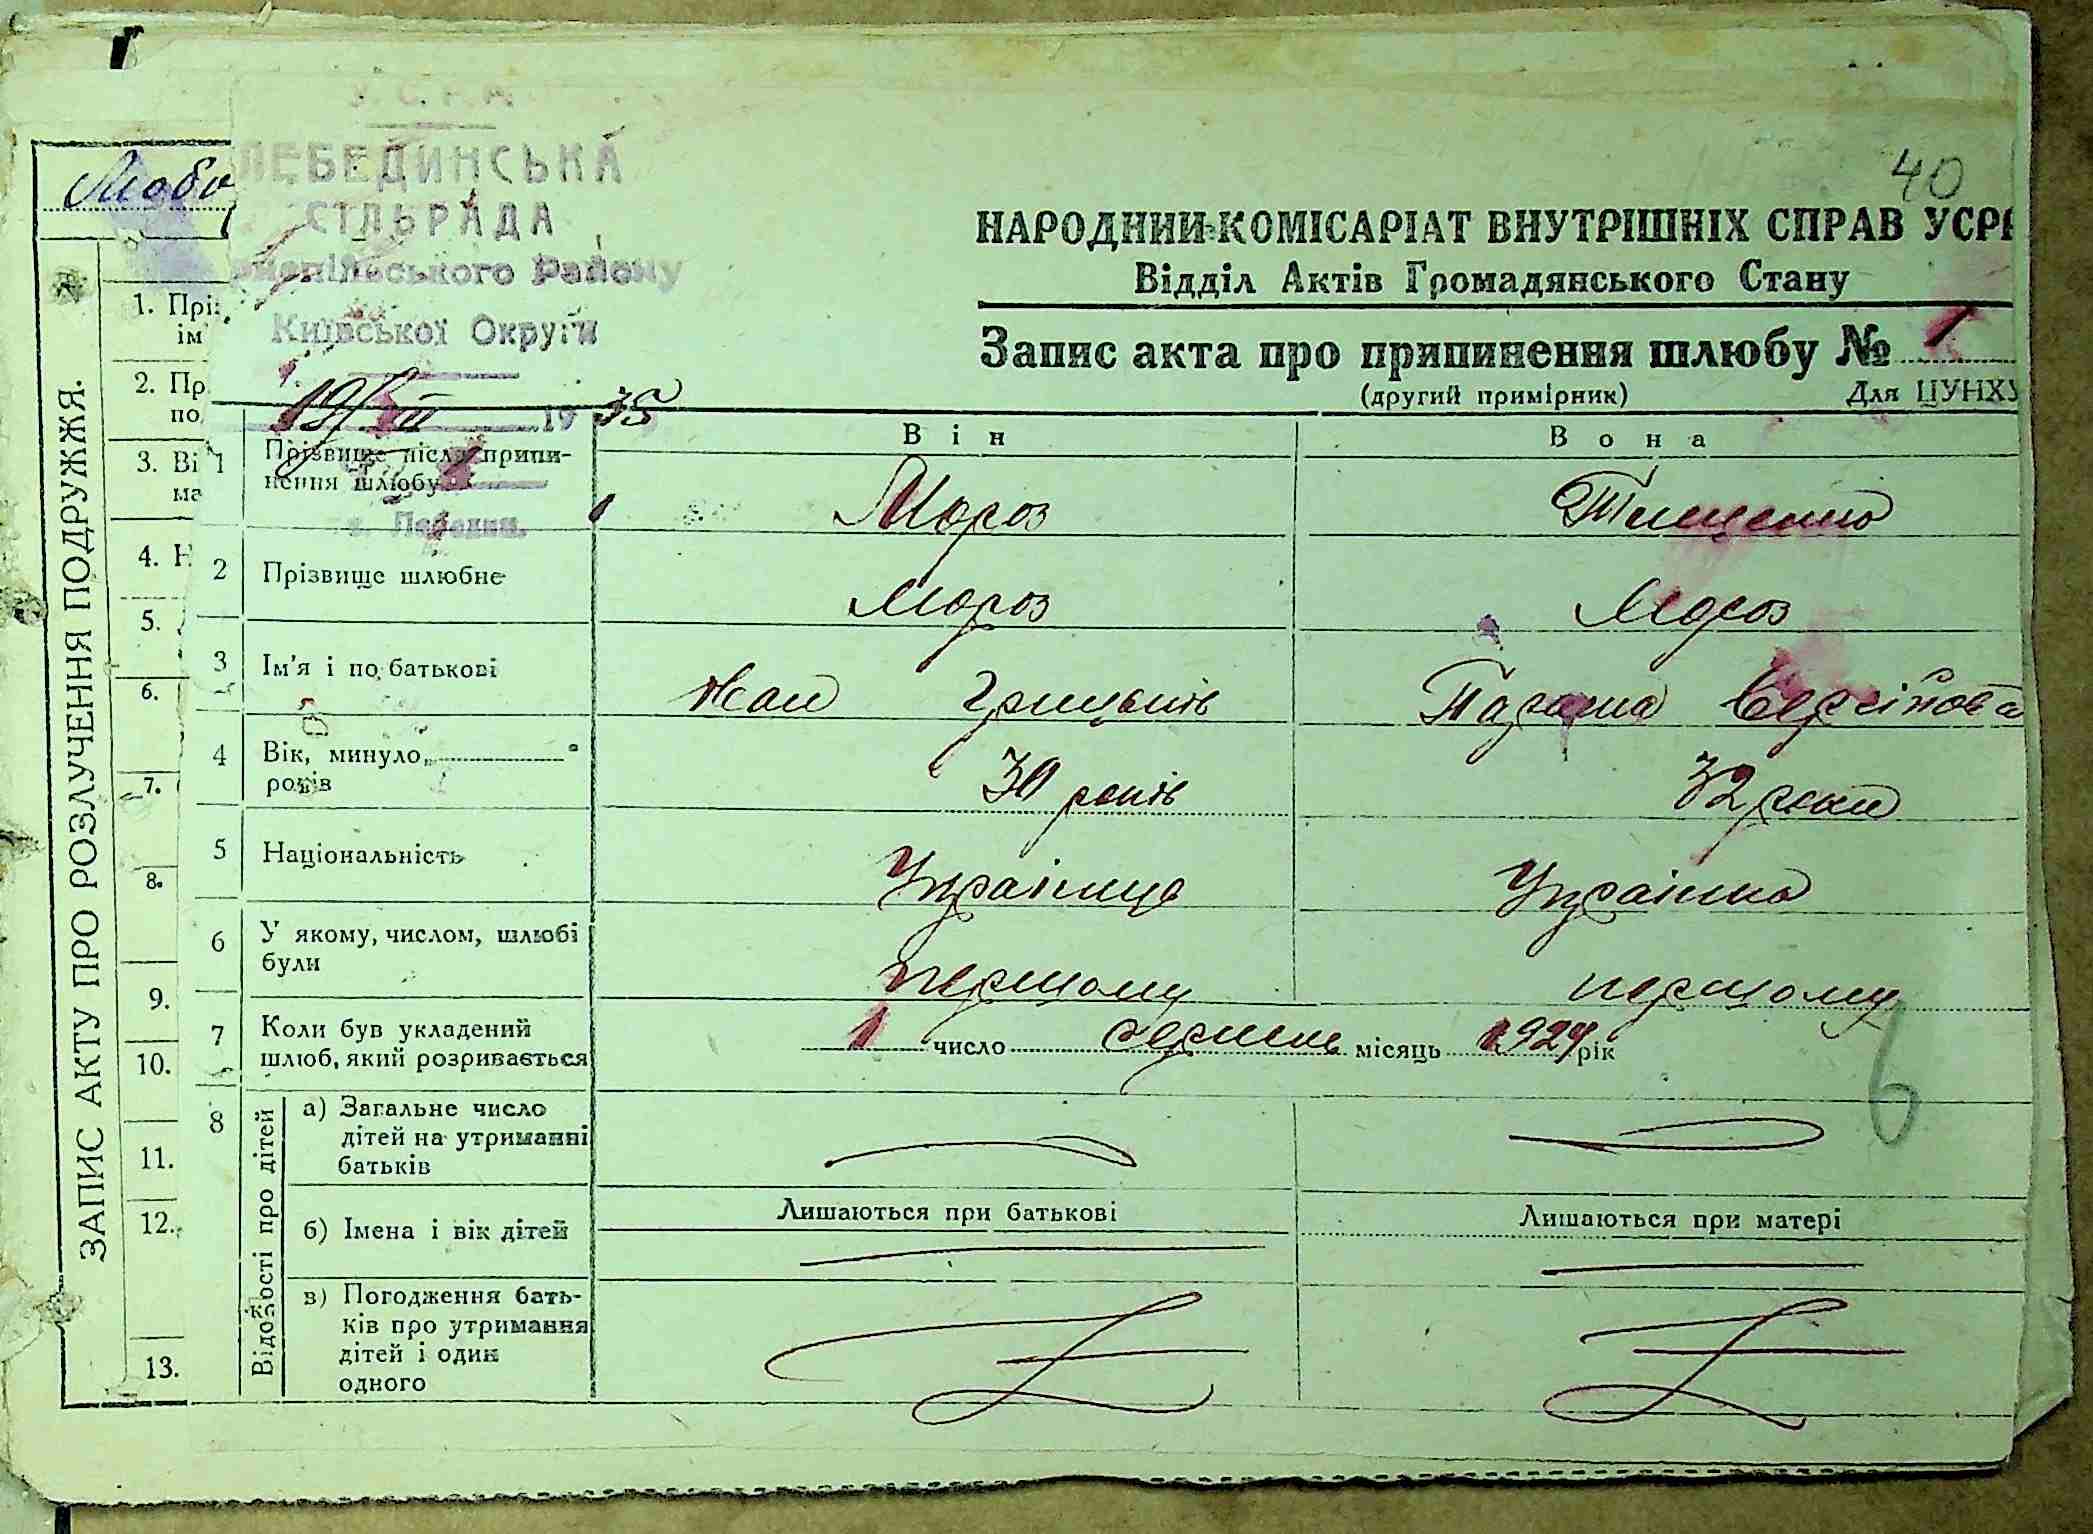 40
У.С.Р.Р.
ЛЕБЕДИНСЬКА
СІЛЬРАДА
Району
Київської Округи
19/VII 1935
с. Лебедин.
НАРОДНИЙ КОМІСАРІАТ ВНУТРІШНІХ СПРАВ УСРР
Відділ Актів Громадянського Стану
Запис акта про припинення шлюбу № 1
(другий примірник) Для ЦУНХУ
Він Вона
1 Прізвище після припи-
нення шлюбу Мороз Тищенко
2 Прізвище шлюбне Мороз Мороз
3 Ім'я і по батькові Грицьків Параска
4 Вік, минуло
років 30 років 32 роки
5 Національність Українць Українка
6 У якому, числом, шлюбі
були першому першому
7 Коли був укладений
шлюб, який розривається 1 число серпень місяць 1924 рік
8 Відомості про дітей
а) Загальне число
дітей на утриманні
батьків
б) Імена і вік дітей Лишаються при батькові Лишаються при матері
в) Погодження бать-
ків про утримання
дітей і один
одного
6
ЗАПИС АКТУ ПРО РОЗЛУЧЕННЯ ПОДРУЖЖЯ.
1. Прі
ім'
2. Пр
по
3. Ві
ма
4. Н
5.
6.
7.
8.
9.
10.
11.
12.
13.